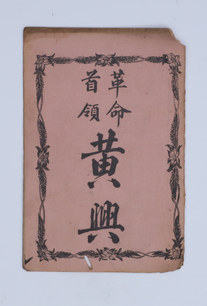 革命
首領
黃興